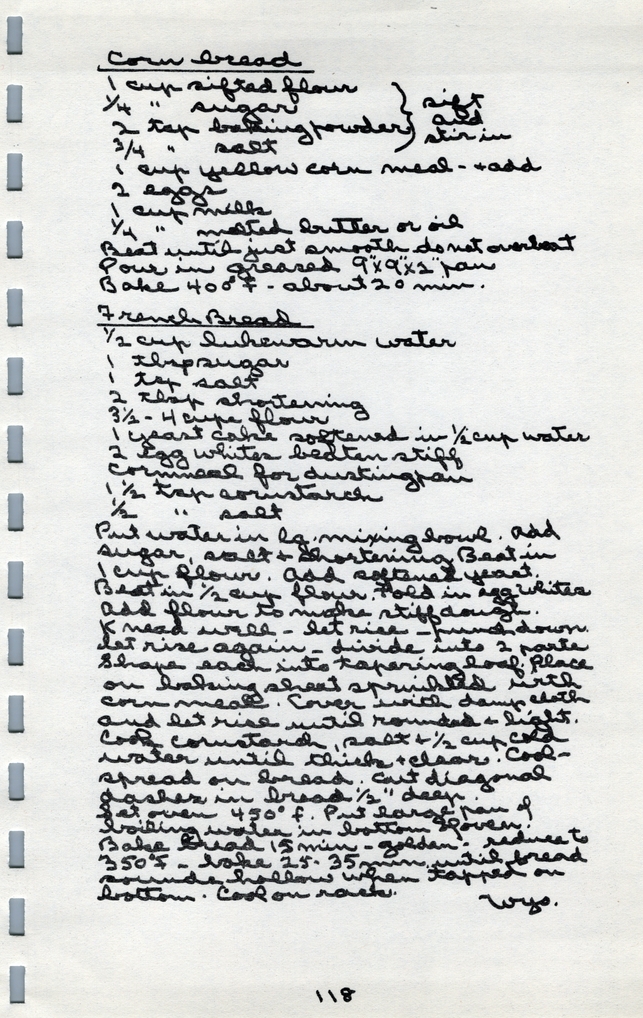 Corn bread
1 cup sifted flour
1/4 " sugar
2 tsp baking powder
3/4 " salt
} sift
and
stir in
1 cup yellow corn meal - + add
2 eggs
1 cup milk
1/4 " melted butter or oil
Beat until just smooth do not overbeat
Pour in greased 9"x9"x2" pan
Bake 400°F - about 20 min.
French Bread
1/2 cup lukewarm water
1 tbsp sugar
1 tsp salt
2 tbsp shortening
3 1/2 - 4 cups flour
1 yeast cake softened in 1/2 cup water
2 egg whites beaten stiff
cornmeal for dusting pan
1 1/2 tsp cornstarch
1/2 " salt
Put water in lg. mixing bowl. Add
sugar, salt + shortening. Beat in
1 cup flour. Add softened yeast.
Beat in 1/2 cup flour. Fold in egg whites
Add flour to make stiff dough.
Knead well - let rise - punch down.
let rise again - divide into 2 parts
Shape each into tapering loaf. Place
on baking sheet sprinkled with
corn meal. Cover with damp cloth
and let rise until rounded + light.
Cook cornstarch, salt + 1/2 cup cold
water until thick + clear. Cool -
spread on bread. Cut diagonal
dashes in bread 1/2" deep.
Set oven 450°F. Put large pan of
boiling water in bottom of oven.
Bake bread 15 min - golden - reduce to
350°F - bake 25-35 min. until bread
sounds hollow when tapped on
bottom. Cool on rack.
Wyo.
118